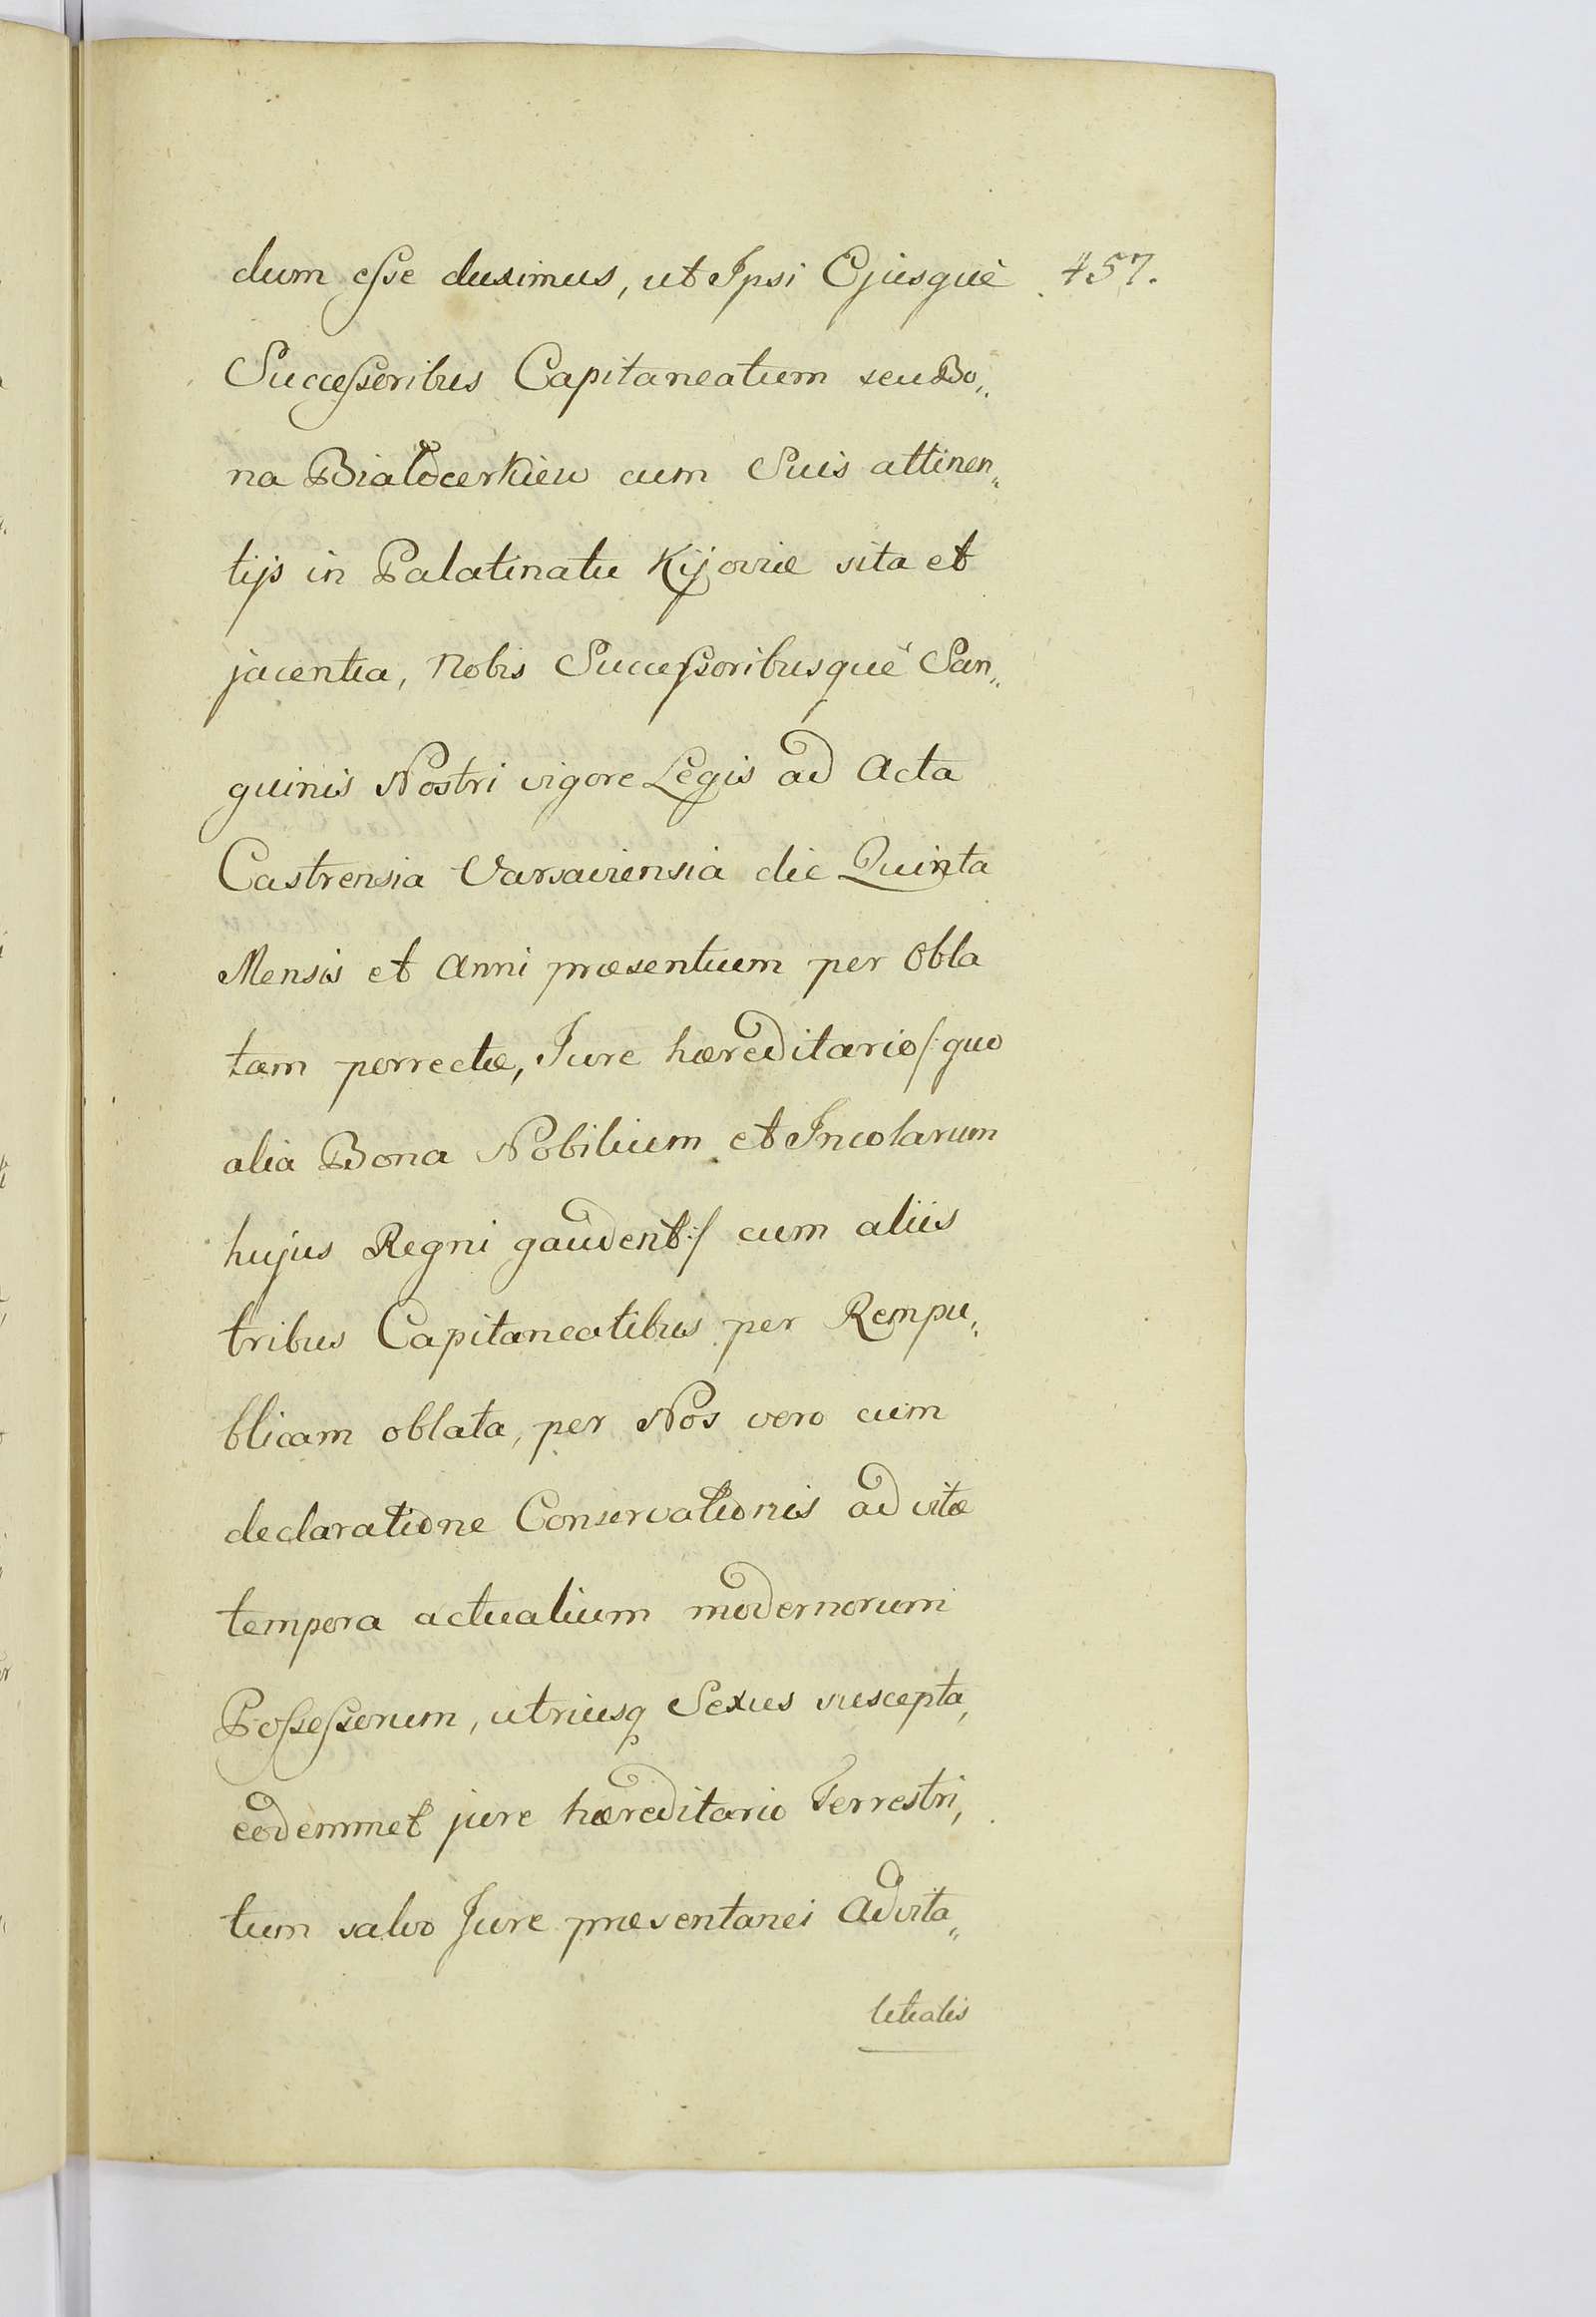 dum esse duximus, ut Ipsi Ejusquè 457.
Successoribus Capitaneatum seu Bo„
na Białocerkiew cum Suis attinen„
tijs in Palatinatu Kijoviæ sita et
jacentia, Nobis Successoribusquè San„
guinis Nostri vigore Legis ad Acta
Castrensia Varsaviensia die Quinta
Mensis et Anni præsentium per Obla
tam porrectæ, Jure hæreditario /: quo
alia Bona Nobilium et Incolarum
hujus Regni gaudent :/ cum aliis
tribus Capitaneatibus per Rempu„
blicam oblata, per Nos vero cum
declaratione Conservationis ad vitæ
tempora actualium modernorum
Possessorum, utriusq Sexus suscepta,
eodemmet jure hæreditario Terrestri,
tum salvo Jure præsentanei Advita„
litialis